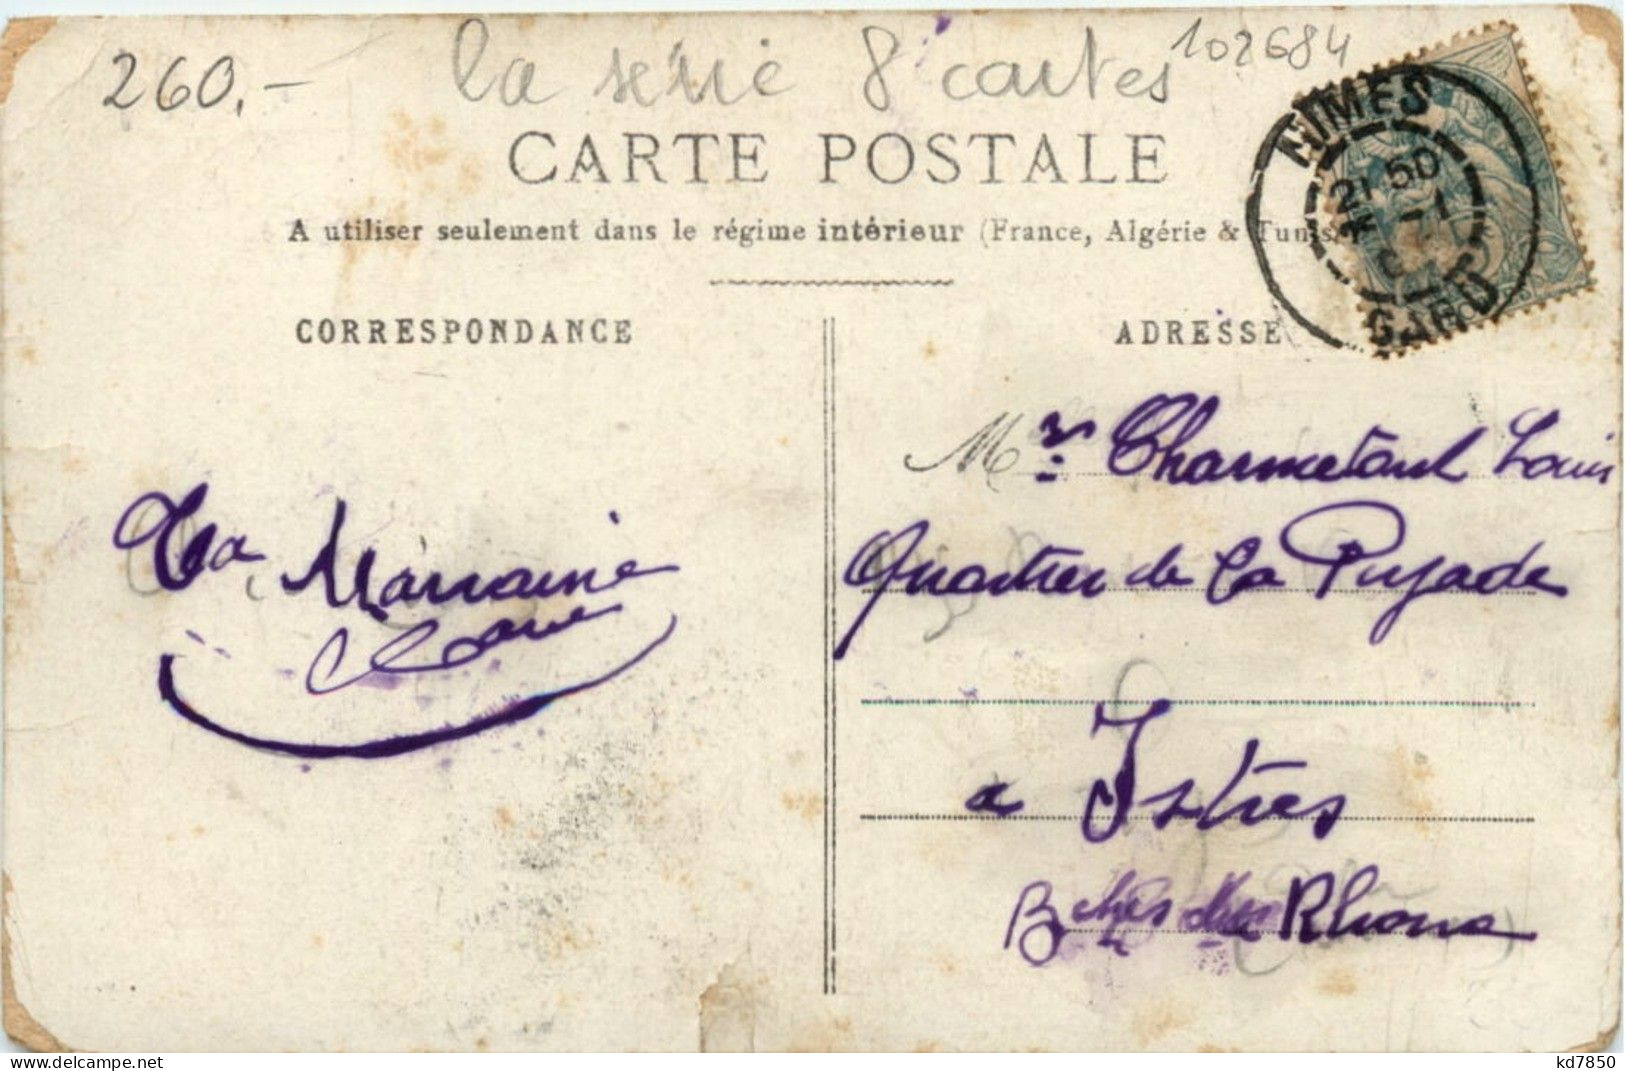 260.-
la série 8 cartes
102684
CARTE POSTALE
A utiliser seulement dans le régime intérieur (France, Algérie & Tunis
NIMES
21 50
-1
GARD
CORRESPONDANCE
ADRESSE
Ta Marraine
Mr. Charmetant Louis
Quartier de la Pujade
a Istres
Bches du Rhone
delcampe.net
kd7850